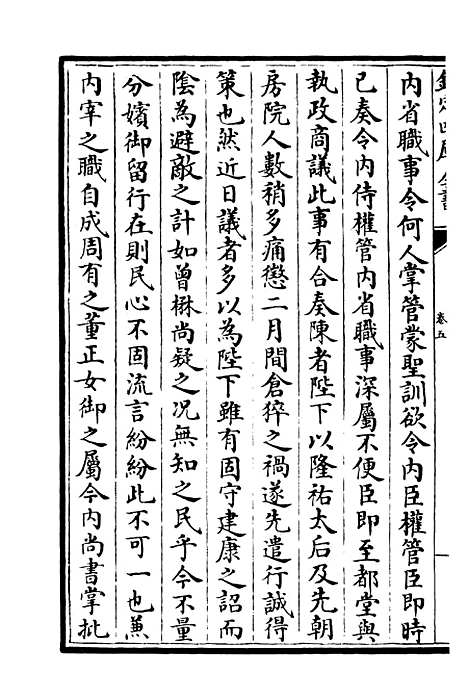 欽定四庫全書
卷五
内省職事令何人掌管蒙聖訓欲令内臣權管臣即時
已奏令内侍權管内省職事深屬不便臣即至都堂與
執政商議此事有合奏陳者陛下以隆祐太后及先朝
房院人數稍多痛懲二月間倉猝之禍遂先遣行誠得
策也然近日議者多以為陛下雖有固守建康之詔而
陰為避敵之計如曾楙尚疑之况無知之民乎今不量
分嬪御留行在則民心不固流言紛紛此不可一也兼
内宰之職自成周有之董正女御之屬今内尚書掌批